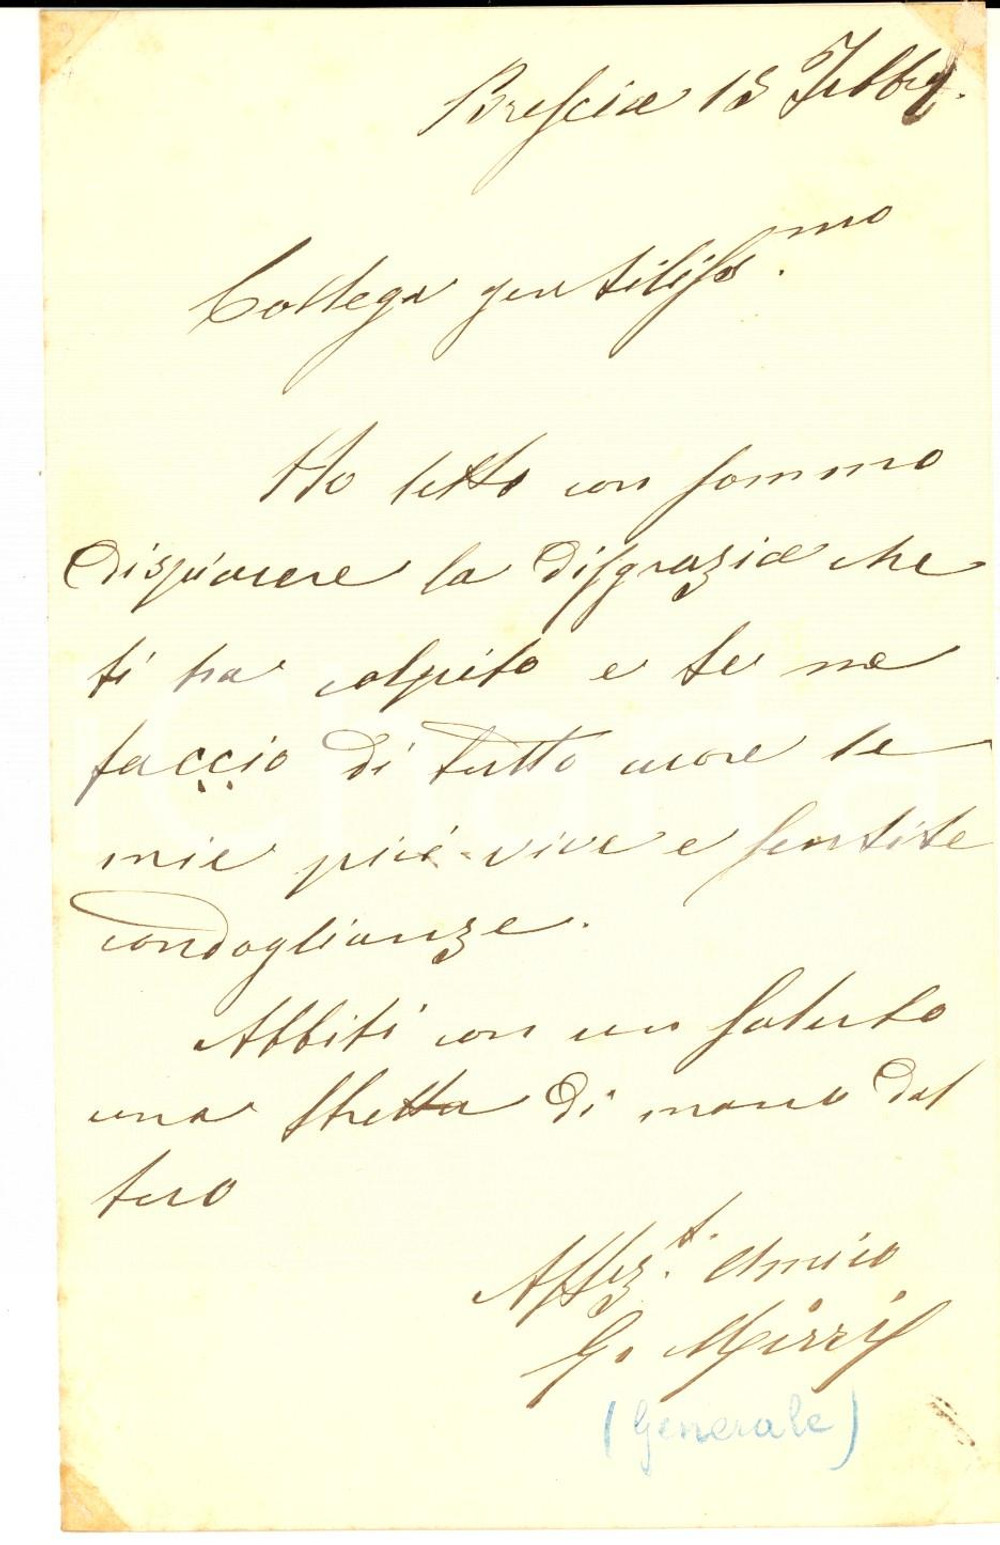 Brescia 13 Febb.
Collega gentiliss.mo
Ho letto con sommo
dispiacere la disgrazia che
ti ha colpito e te ne
faccio di tutto cuore le
mie più vive e sentite
condoglianze.
Abbiti con un saluto
una stretta di mano dal
tuo
Affez.t. Amico
G.
(Generale)